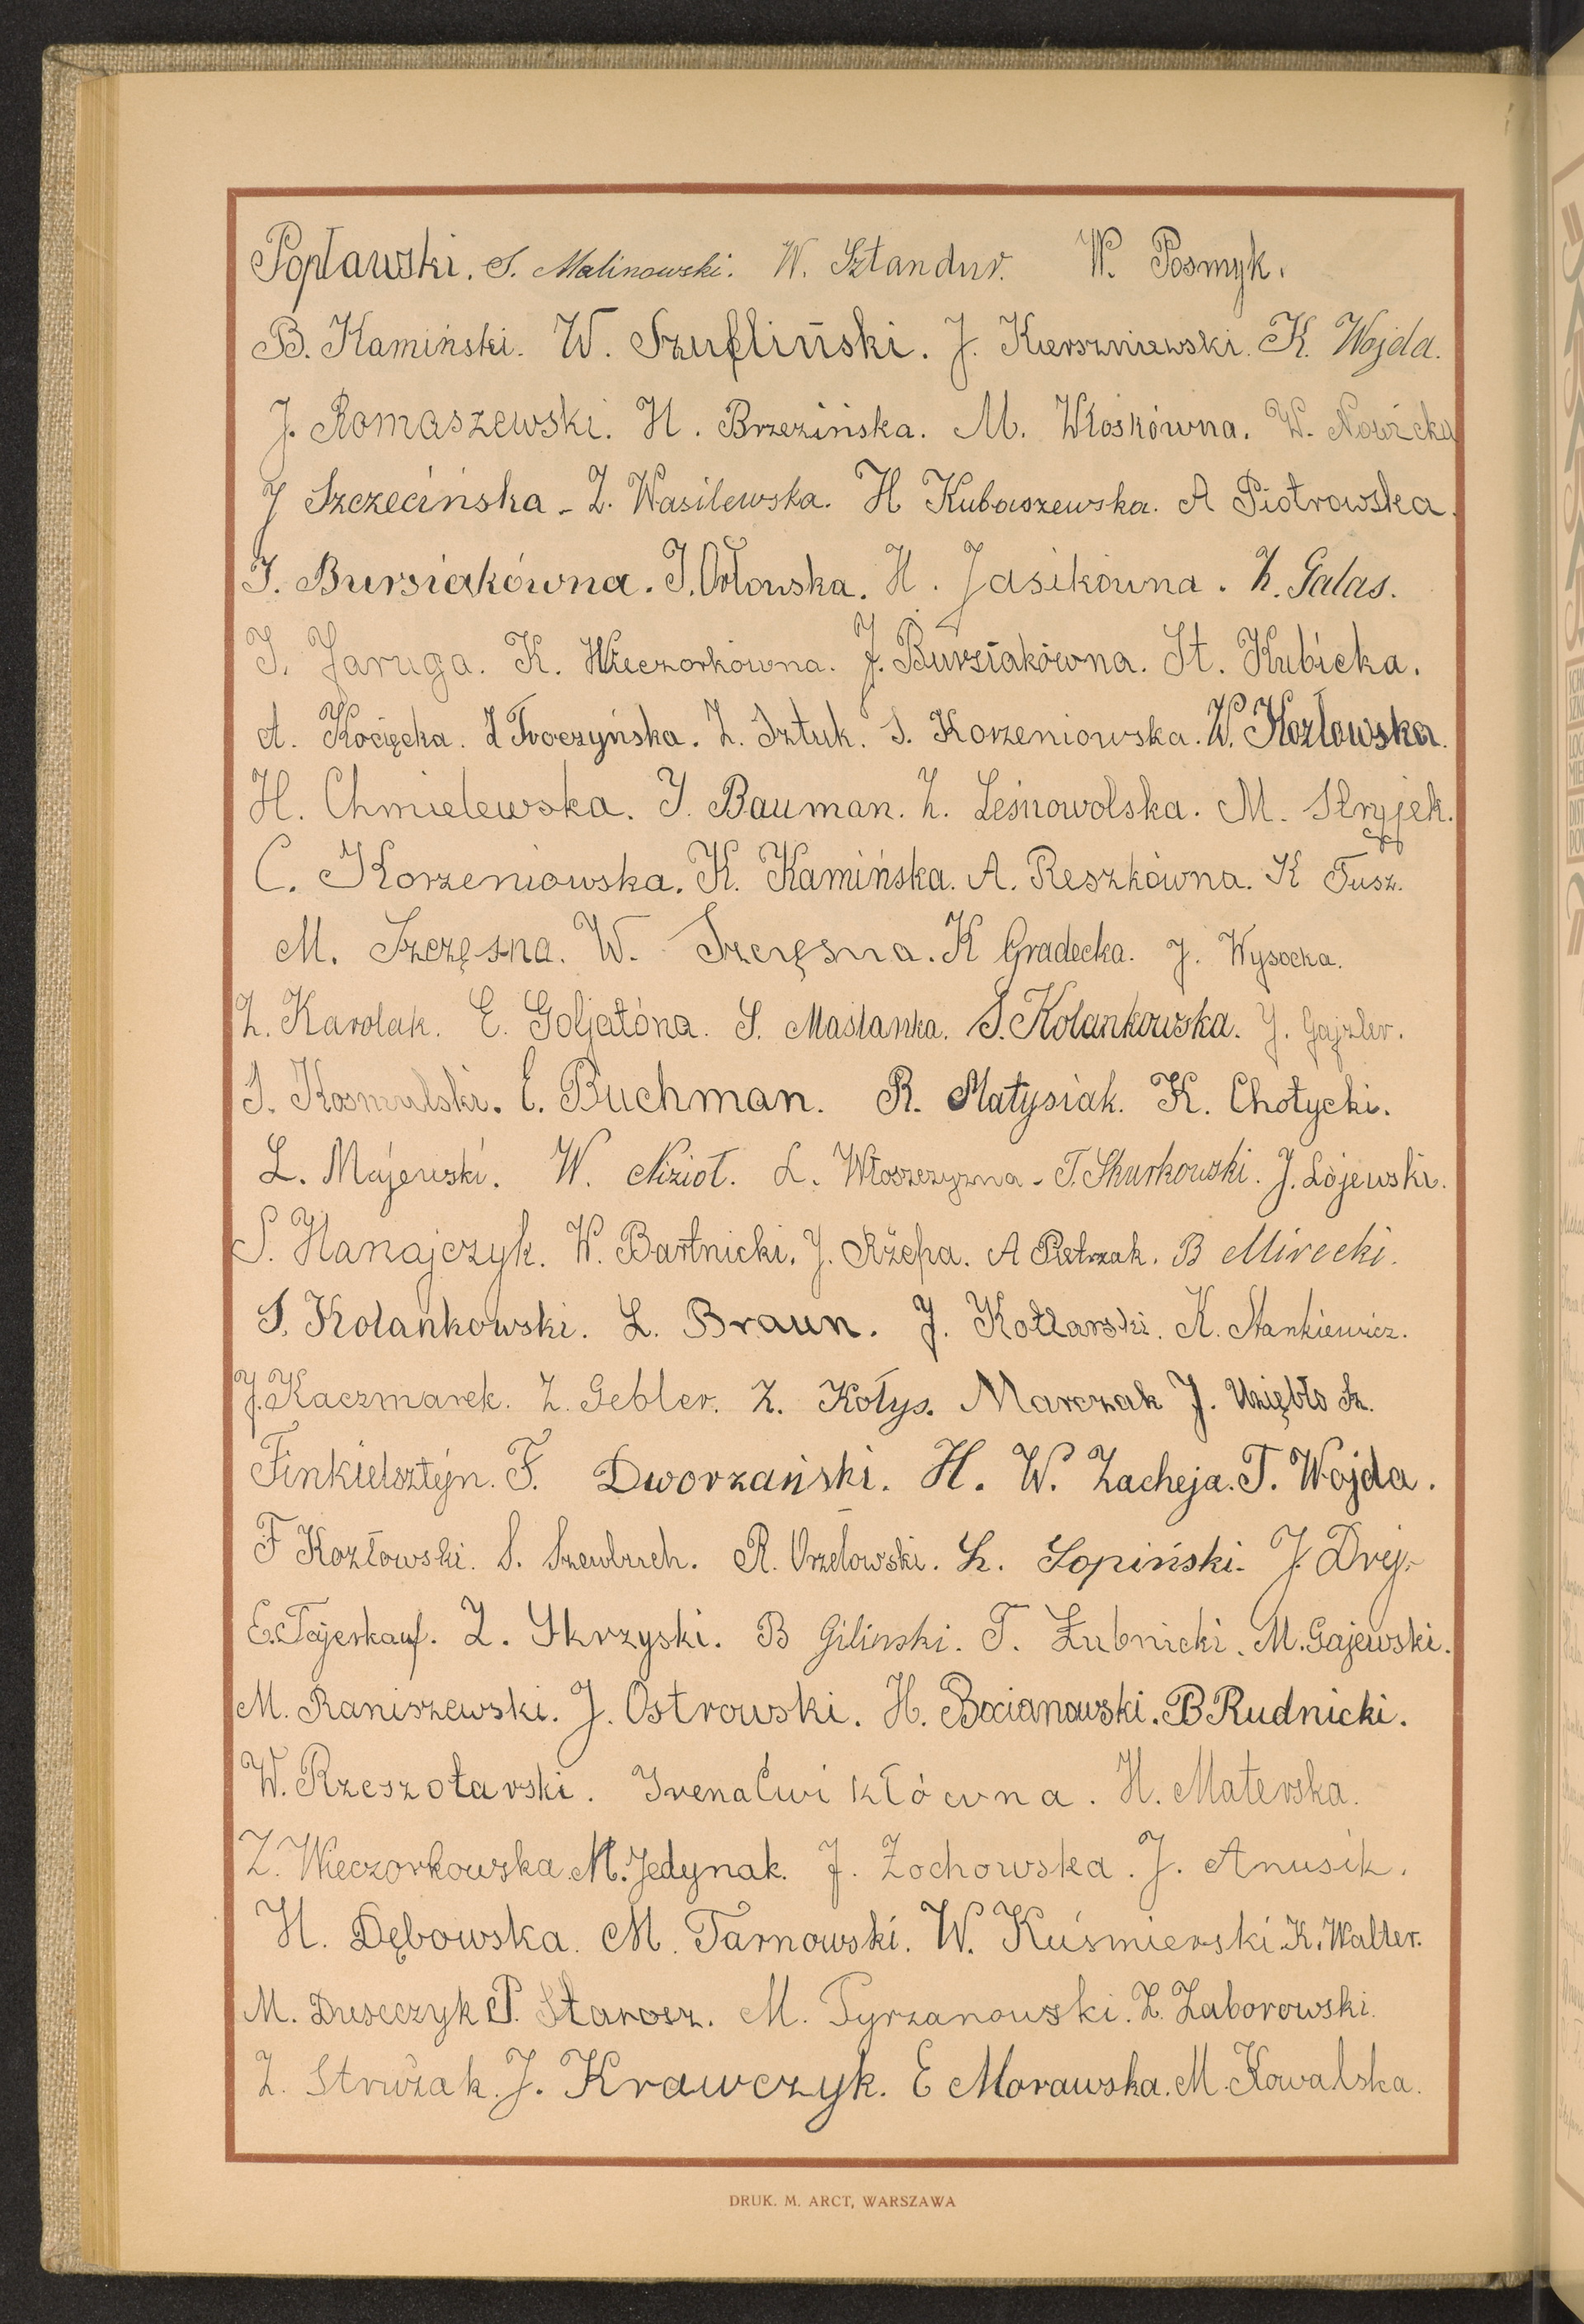 Popławski. S. Malinowski. W. Sztandur. W. Posmyk.
B. Kamiński. W. Szufliński. J. Kierszniewski. K. Wojda.
J. Romaszewski. H. Brzezińska. M. Włoskówna. W. Nowicka
J Szczecińska - Z. Wasilewska. H Kubaszewska. A Piotrowska.
I. Bursiakówna. I. Orłowska. H. Jasikówna. Z. Galas.
I. Jaruga. K. Wieczorkówna. J. Bursiakówna. St. Kubicka.
A. Kocięcka. Z. Sztuk. S. Korzeniowska. W. Kozłowska.
H. Chmielewska. I. Bauman. Z. Leśnowolska. M. Stryjek.
C. Korzeniowska. K. Kamińska. A. Reszkówna. K Tusz.
M. Szczęsna. W. Szczęsna. K Gradecka. J. Wysocka.
Z. Karolak. E. Goljatóna. S. Maślanka. S. Kolankowska. J. Gajzler.
S. Kosmulski. E. Buchman. R. Matysiak. K. Chołycki.
L. Majewski. W. Nizioł. L. Włoszczyzna - T. Skurkowski. J. Łojewski.
S. Hanajczyk. W. Bartnicki. J. Rżepa. A Pietrzak. B Mirecki.
S. Kolankowski. L. Braun. J. Kotlarski. K. Stankiewicz.
J. Kaczmarek. Z. Gebler. Z. Kołys. Marczak J. Uziębło Sz.
Finkielsztejn. F. Dworzański. H. W. Zacheja. T. Wojda.
F Kozłowski. S. R. Orzełowski. Z. Sopiński. J. Drej.
E. Fajerkauf. Z. Skrzyski. B Giliński. T. Łubnicki. M. Gajewski.
M. Raniszewski. J. Ostrowski. H. Bocianowski. B Rudnicki.
W. Rzeszotarski. Irena Ćwikłówna. H. Materska.
Z. Wieczorkowska. M. Jedynak. J. Żochowska. J. Anusik.
H. Dębowska. M. Tarnowski. W. Kuśmierski. K. Walter.
M. Duseczyk P. Starosz. M. Tyrzanowski. Z. Zaborowski.
Z. Strużak. J. Krawczyk. E Morawska. M. Kowalska.
DRUK. M. ARCT, WARSZAWA